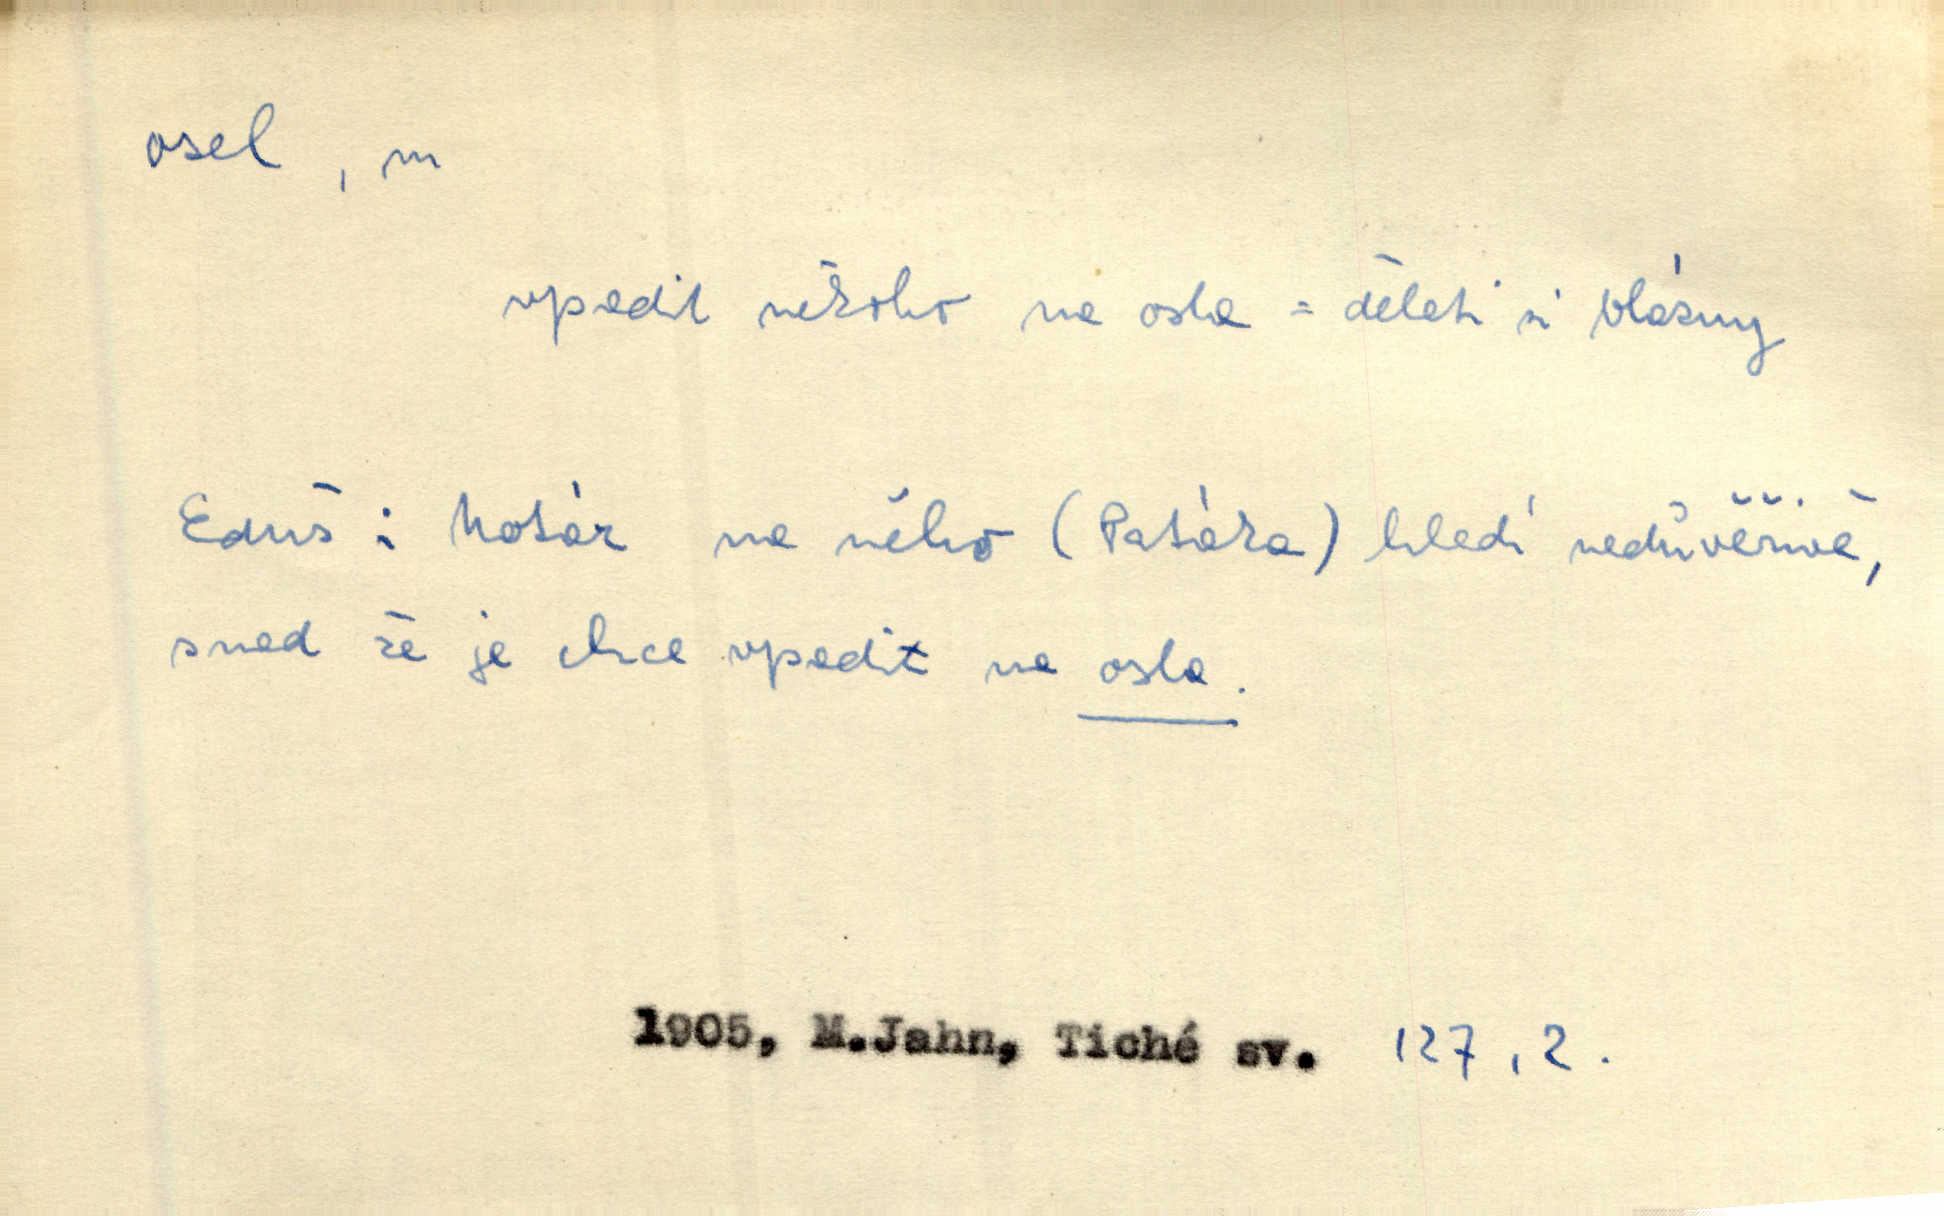 osel, m
vpadit někoho na osla = dělati si blázny
Eduš i Notár na něho (Patáka) hledí nedůvěřivě,
snad že je chce vpadit na osla.
1905, M.Jahn, Tiché sv. 127, 2.